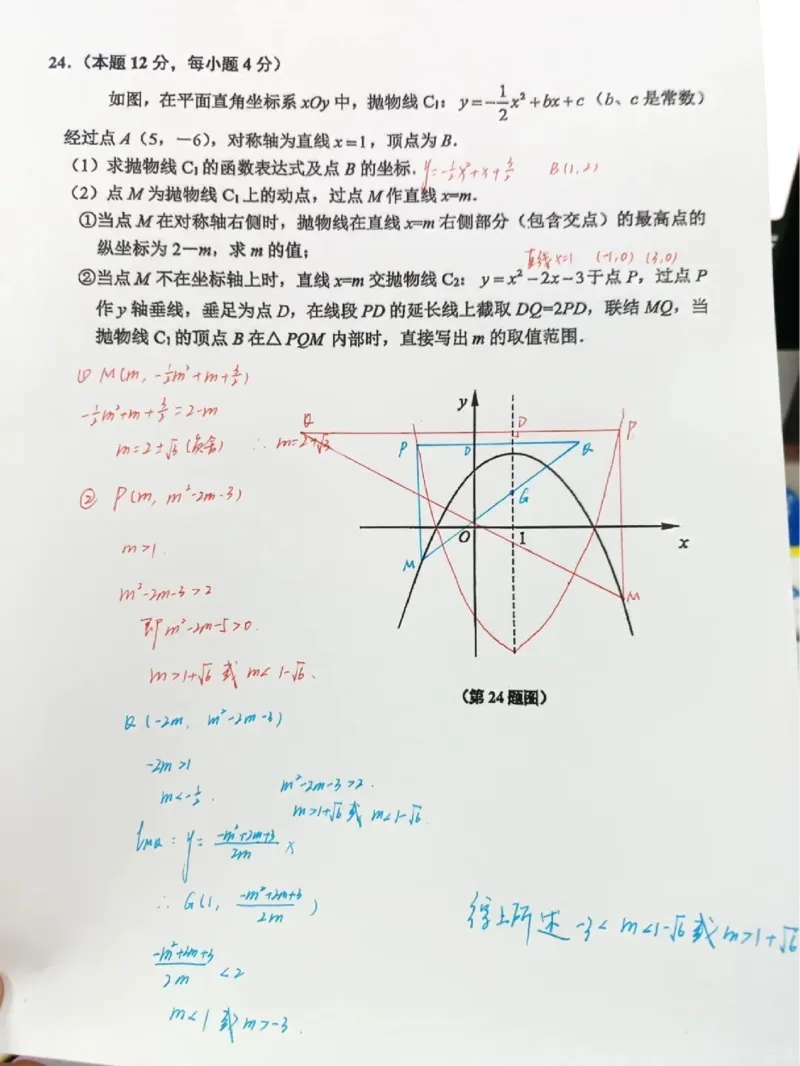 24.（本题 12 分，每小题 4 分）
如图，在平面直角坐标系 xOy 中，抛物线 C₁：y=-1/2x²+bx+c（b、c 是常数）
经过点 A（5，－6），对称轴为直线 x=1，顶点为 B．
（1）求抛物线 C₁ 的函数表达式及点 B 的坐标． y=-1/2x²+x+3/2 B(1,2)
（2）点 M 为抛物线 C₁ 上的动点，过点 M 作直线 x=m．
①当点 M 在对称轴右侧时，抛物线在直线 x=m 右侧部分（包含交点）的最高点的
纵坐标为 2－m，求 m 的值；
直线x=1 (-1,0) (3,0)
②当点 M 不在坐标轴上时，直线 x=m 交抛物线 C₂：y=x²－2x－3 于点 P，过点 P
作 y 轴垂线，垂足为点 D，在线段 PD 的延长线上截取 DQ=2PD，联结 MQ，当
抛物线 C₁ 的顶点 B 在△PQM 内部时，直接写出 m 的取值范围．
① M(m, -1/2m²+m+3/2)
-1/2m²+m+3/2=2-m
m=2±√3 (负舍) ∴ m=2+√3
② P(m, m²-2m-3)
m>1
m²-2m-3>2
即 m²-2m-5>0.
m>1+√6 或 m<1-√6.
y
Q D P
P D Q
G
O 1 x
M
M
（第 24 题图）
Q(-2m, m²-2m-3)
-2m>1
m<-1/2.
m²-2m-3>2.
m>1+√6 或 m<1-√6.
lMQ: y= (-m²+2m+3)/2m x
∴ G(1, (-m²+2m+3)/2m)
(-m²+2m+3)/2m <2
m<1 或 m>-3.
综上所述 -3<m<1-√6 或 m>1+√6